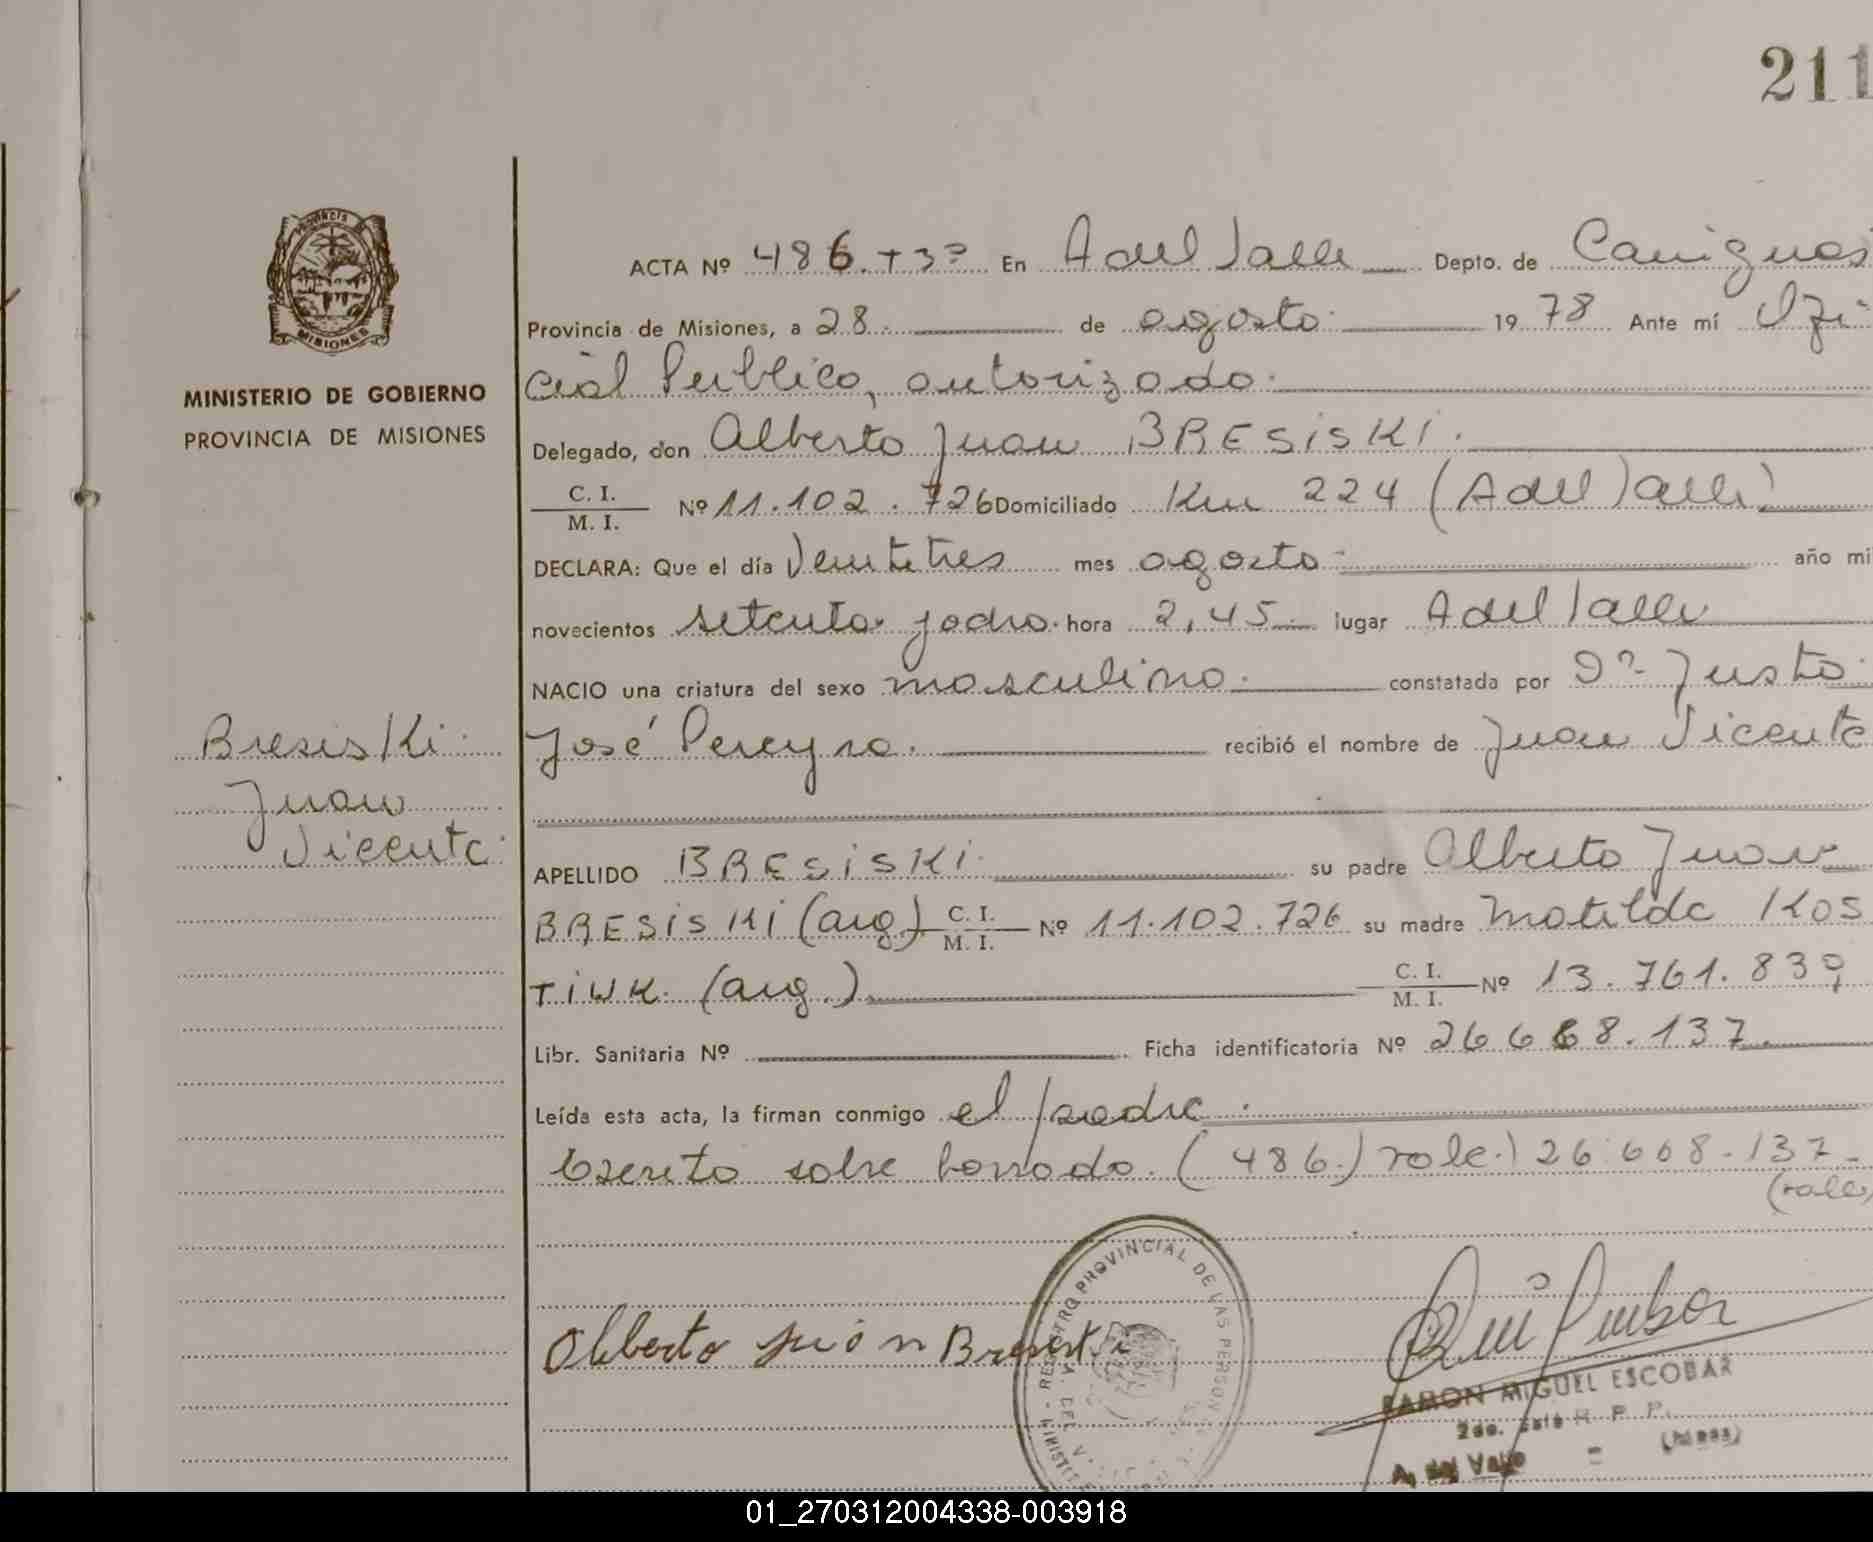 211
ACTA Nº 486. T 3º En A del Valle Depto. de Cainguas
Provincia de Misiones, a 28 de agosto 1978 Ante mí Ofi
cial Publico, autorizado.
MINISTERIO DE GOBIERNO
PROVINCIA DE MISIONES
Delegado, don Alberto Juan BRESISKI.
C. I.
M. I. Nº 11.102.726 Domiciliado Km 224 (A del Valle)
DECLARA: Que el día Veintitres mes agosto año mi
novecientos setenta y ocho hora 2,45 lugar A del Valle
NACIO una criatura del sexo masculino. constatada por Dº Justo
José Pereyra. recibió el nombre de Juan Vicente
Bresiski
Juan
Vicente
APELLIDO BRESISKI su padre Alberto Juan
BRESISKI (arg) C. I. M. I. Nº 11.102.726 su madre Matilde KOS
TIUK. (arg.) C. I. M. I. Nº 13.761.839
Libr. Sanitaria Nº Ficha identificatoria Nº 26668.137.
Leída esta acta, la firman conmigo el padre.
Escrito sobre borrado. (486.) vale.) 26.668.137-
(vale)
REGISTRO PROVINCIAL DE LAS PERSON
Alberto Juan Bresiski
RAMON MIGUEL ESCOBAR
2do. Jefe R. P. P.
A. del Valle - (Mnes)
MISIONES
01_270312004338-003918